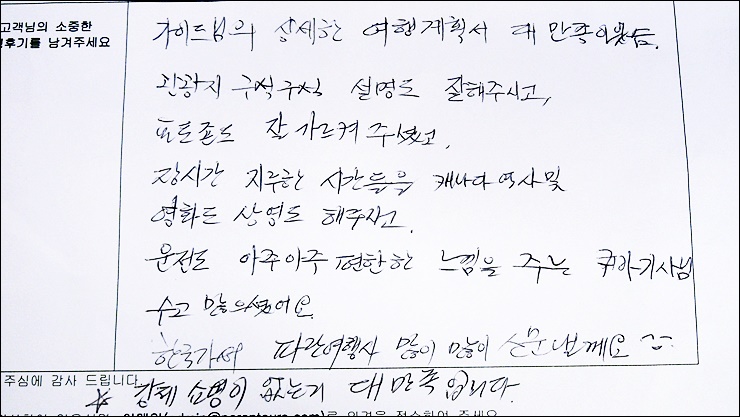 고객님의 소중한
후기를 남겨주세요
가이드님의 상세한 여행계획서 대 만족이었음.
관광지 구석구석 설명도 잘해주시고,
포토존도 잘 가르켜 주셨고,
장시간 지루한 시간들을 캐나다 역사및
영화도 상영도 해주시고.
운전도 아주아주 편안한 느낌을 주는 기사님
수고 많으셨어요.
한국가서 파란여행사 많이 많이 소문낼께요
주심에 감사 드립니다.
* 강제 쇼핑이 없는거 대 만족입니다.